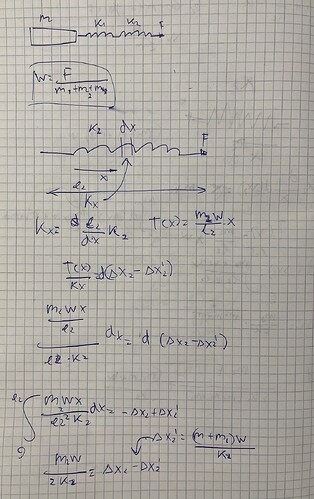 m K₁ K₂ F
W = F / (m₁+m₂+m)
K₂ dx F
x
l₂
Kx
Kx = l₂/dx K₂ T(x) = m₂W/L₂ x
T(x)/Kx = d(Δx₂ - Δx₂')
(m₂Wx/l₂) / (l2·K₂) dx = d (Δx₂ - Δx₂')
∫ m₂Wx/(l2² K₂) dx = -Δx₂ + Δx₂'
Δx₂' = (m+m₁)W/K₂
m₂W/2K₂ = Δx₂ - Δx₂'